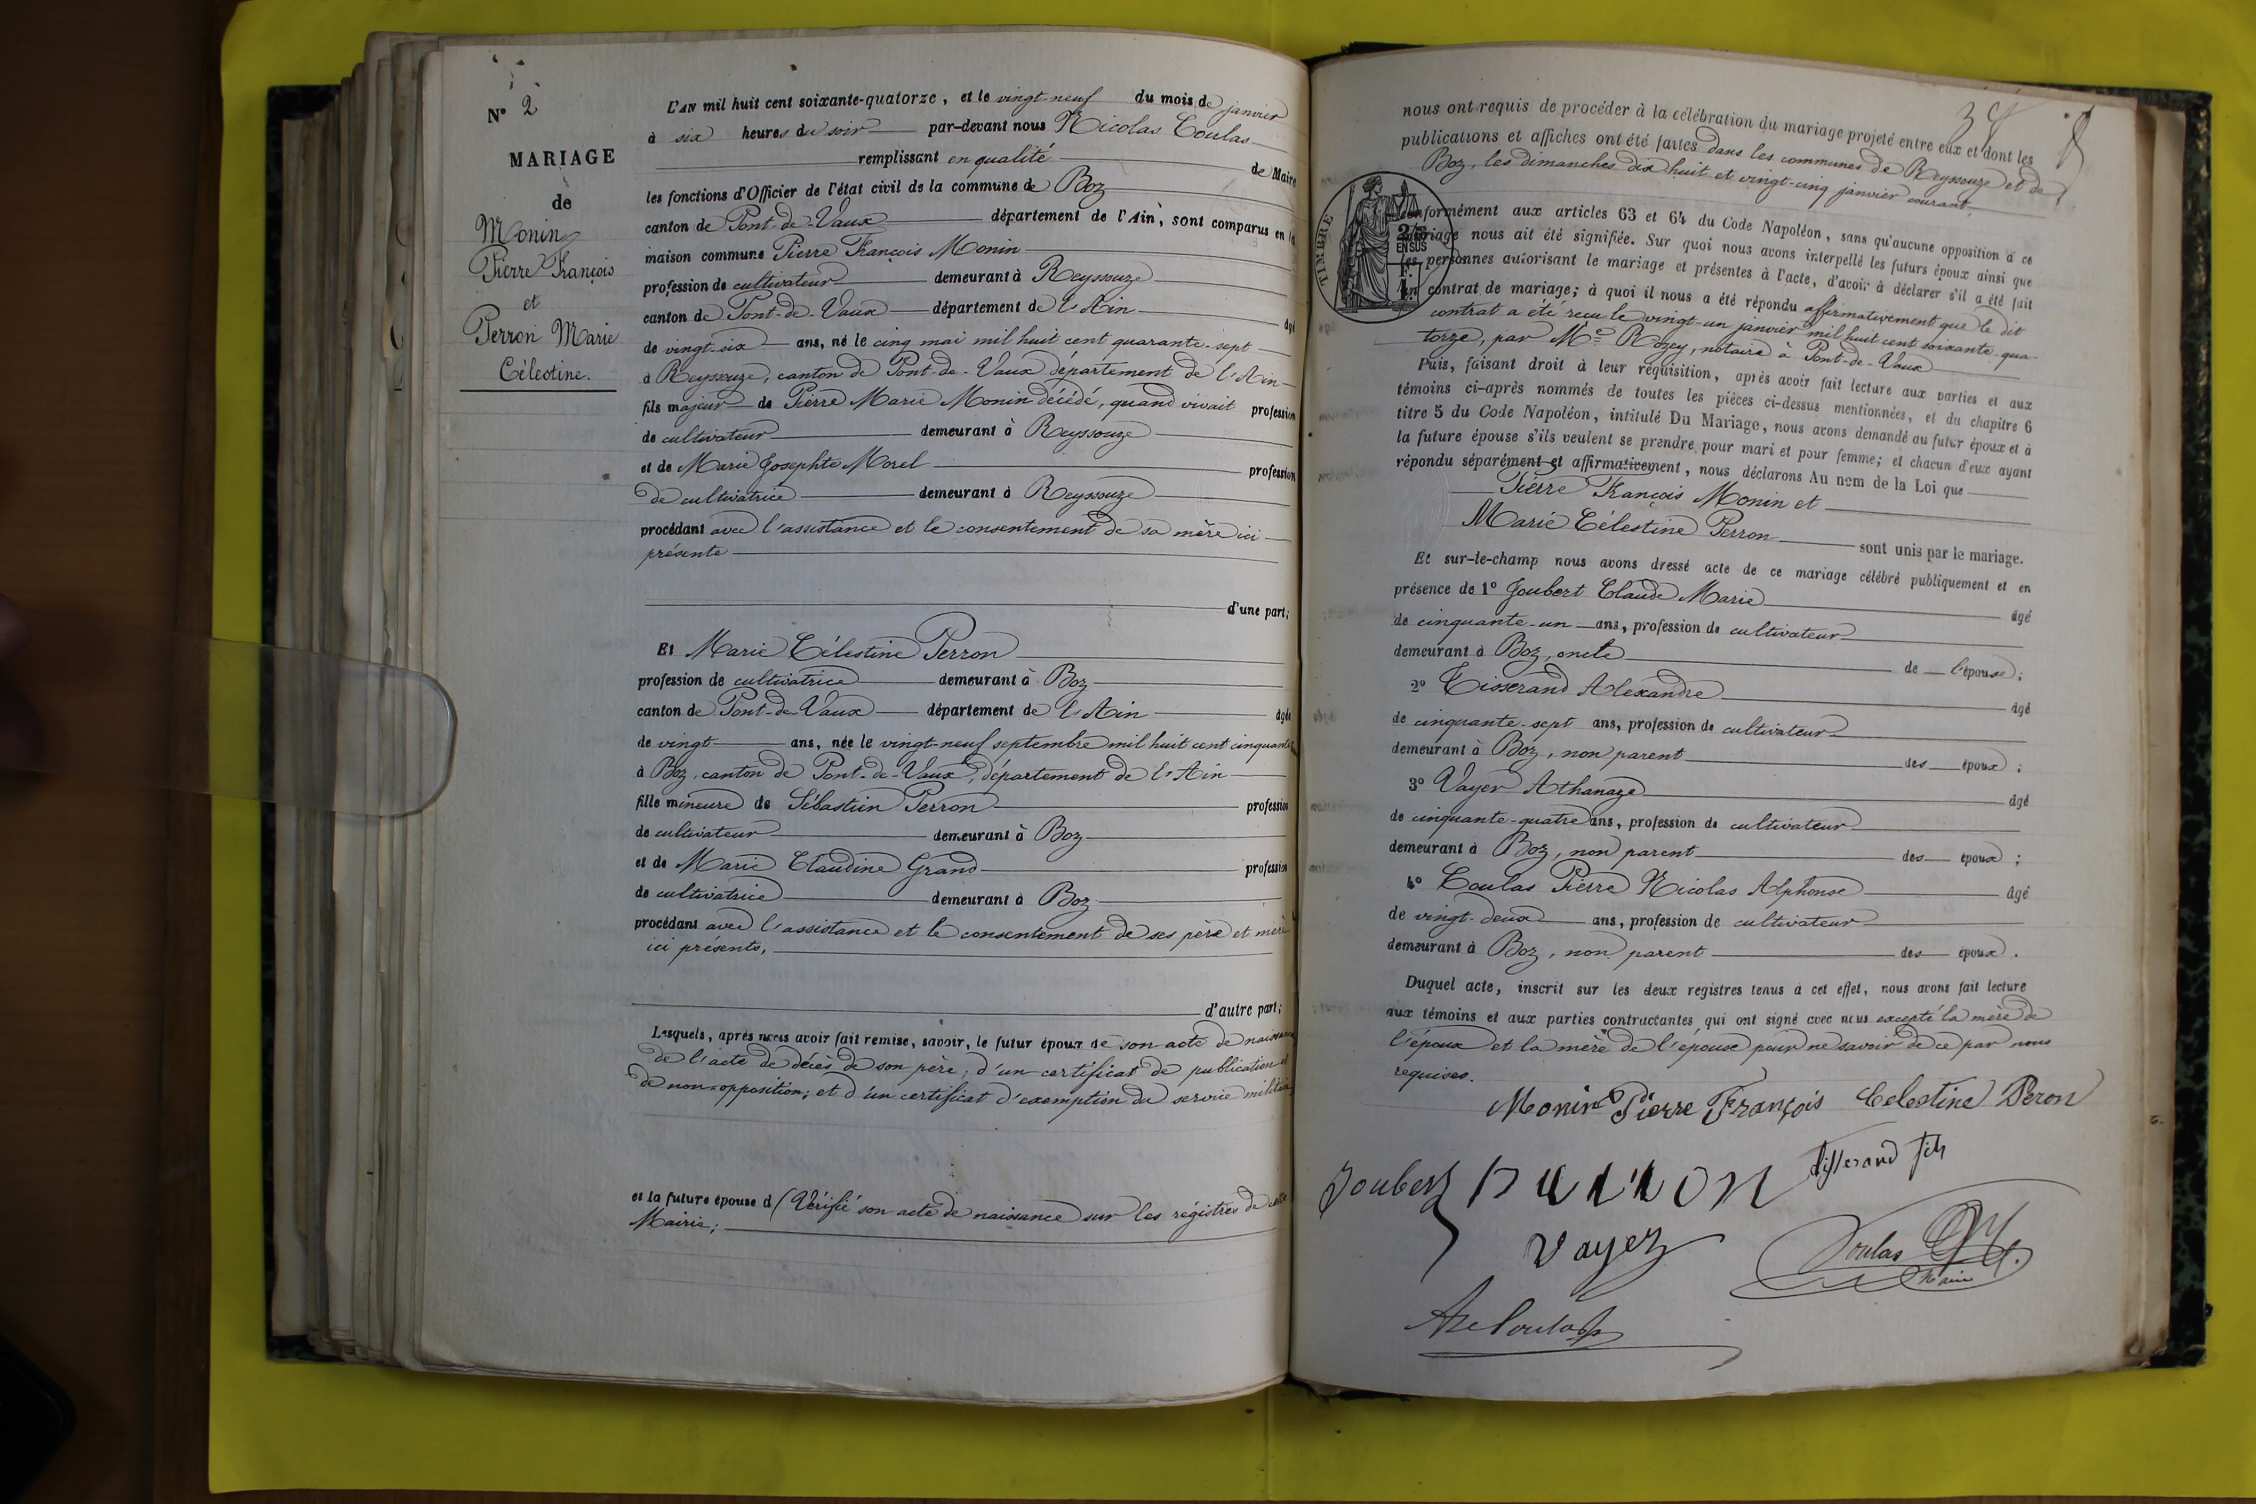 N° 2
MARIAGE
de
Monin
Pierre François
et
Perron Marie
Célestine.
L'AN mil huit cent soixante-quatorze, et le vingt-neuf du mois de janvier
à six heures du soir par-devant nous Nicolas Coulas
remplissant en qualité de Maire
les fonctions d'Officier de l'état civil de la commune de Boz
canton de Pont-de-Vaux département de l'Ain, sont comparus en la
maison commune Pierre François Monin
profession de cultivateur demeurant à Reyssouze
canton de Pont-de-Vaux département de l'Ain âgé
de vingt-six ans, né le cinq mai mil huit cent quarante-sept
à Reyssouze, canton de Pont-de-Vaux département de l'Ain
fils majeur de Pierre Marie Monin décédé, quand vivait profession
de cultivateur demeurant à Reyssouze
et de Marie Josephte Morel profession
de cultivatrice demeurant à Reyssouze
procédant avec l'assistance et le consentement de sa mère ici
présente
d'une part;
Et Marie Célestine Perron
profession de cultivatrice demeurant à Boz
canton de Pont-de-Vaux département de l'Ain âgée
de vingt ans, née le vingt-neuf septembre mil huit cent cinquante
à Boz, canton de Pont-de-Vaux, département de l'Ain
fille mineure de Sébastien Perron profession
de cultivateur demeurant à Boz
et de Marie Claudine Grand profession
de cultivatrice demeurant à Boz
procédant avec l'assistance et le consentement de ses père et mère
ici présents,
d'autre part;
Lesquels, après nous avoir fait remise, savoir, le futur époux de son acte de naissance
de l'acte de décès de son père, d'un certificat de publication et
de non-opposition; et d'un certificat d'exemption du service militaire
et la future épouse d (Vérifié son acte de naissance sur les régistres de cette
Mairie;
nous ont requis de procéder à la célébration du mariage projeté entre eux et dont les
publications et affiches ont été faites dans les communes de Reyssouze et de
Boz, les dimanches dix huit et vingt-cinq janvier courant,
TIMBRE
2/10
EN SUS
conformément aux articles 63 et 64 du Code Napoléon, sans qu'aucune opposition à ce
mariage nous ait été signifiée. Sur quoi nous avons interpellé les futurs époux ainsi que
les personnes autorisant le mariage et présentes à l'acte, d'avoir à déclarer s'il a été fait
un contrat de mariage; à quoi il nous a été répondu affirmativement que le dit
contrat a été reçu le vingt-un janvier mil huit cent soixante-qua-
torze, par Me Rozey, notaire à Pont-de-Vaux
Puis, faisant droit à leur réquisition, après avoir fait lecture aux parties et aux
témoins ci-après nommés de toutes les pièces ci-dessus mentionnées, et du chapitre 6
titre 5 du Code Napoléon, intitulé Du Mariage, nous avons demandé au futur époux et à
la future épouse s'ils veulent se prendre pour mari et pour femme; et chacun d'eux ayant
répondu séparément et affirmativement, nous déclarons Au nom de la Loi que
Pierre François Monin et
Marie Célestine Perron sont unis par le mariage.
Et sur-le-champ nous avons dressé acte de ce mariage célébré publiquement et en
présence de 1° Joubert Claude Marie âgé
de cinquante-un ans, profession de cultivateur
demeurant à Boz, oncle de l'épouse;
2° Tisserand Alexandre âgé
de cinquante-sept ans, profession de cultivateur
demeurant à Boz, non parent des époux;
3° Vayer Athanaze âgé
de cinquante-quatre ans, profession de cultivateur
demeurant à Boz, non parent des époux;
4° Coulas Pierre Nicolas Alphonse âgé
de vingt-deux ans, profession de cultivateur
demeurant à Boz, non parent des époux.
Duquel acte, inscrit sur les deux registres tenus à cet effet, nous avons fait lecture
aux témoins et aux parties contractantes qui ont signé avec nous excepté la mère de
l'époux et la mère de l'épouse pour ne savoir de ce par nous
requises.
Monin Pierre François Celestine Péron
Joubert
Tisserand fils
Vayer
Coulas
Maire